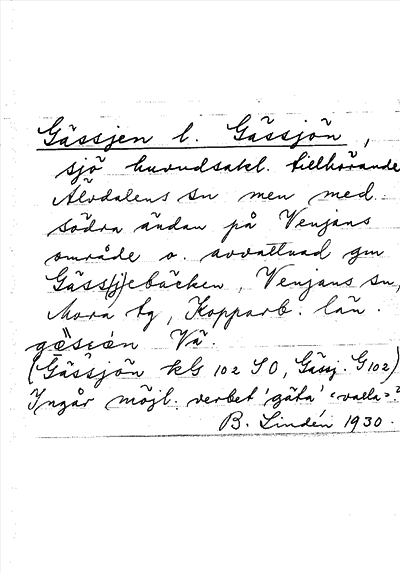 Gässjen l. Gässjön,
sjö huvudsakl. tillhörande
Älvdalens sn men med
södra ändan på Venjans
område o. avvattnad gm
Gäss(j)ebäcken, Venjans sn,
Mora tg, Kopparb. län.
Vä.
(Gässjön kbl 102 SO, Gässj. G 102)
Ingår möjl. verbet 'gäta' "valla"?
B. Lindén 1930.